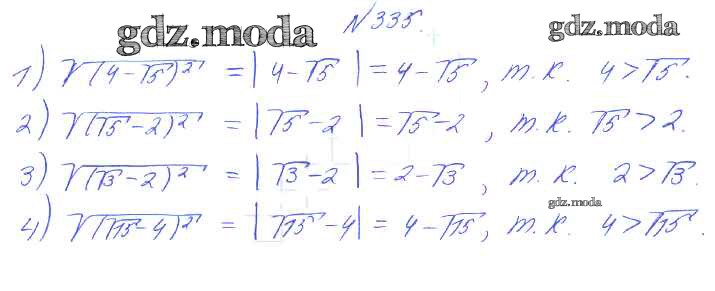 №335.
gdz.moda gdz.moda
1) √(4-√5)² = |4-√5| = 4-√5, т.к. 4>√5.
2) √(√5-2)² = |√5-2| = √5-2, т.к. √5>2.
3) √(√3-2)² = |√3-2| = 2-√3, т.к. 2>√3.
gdz.moda
4) √(√15-4)² = |√15-4| = 4-√15, т.к. 4>√15.